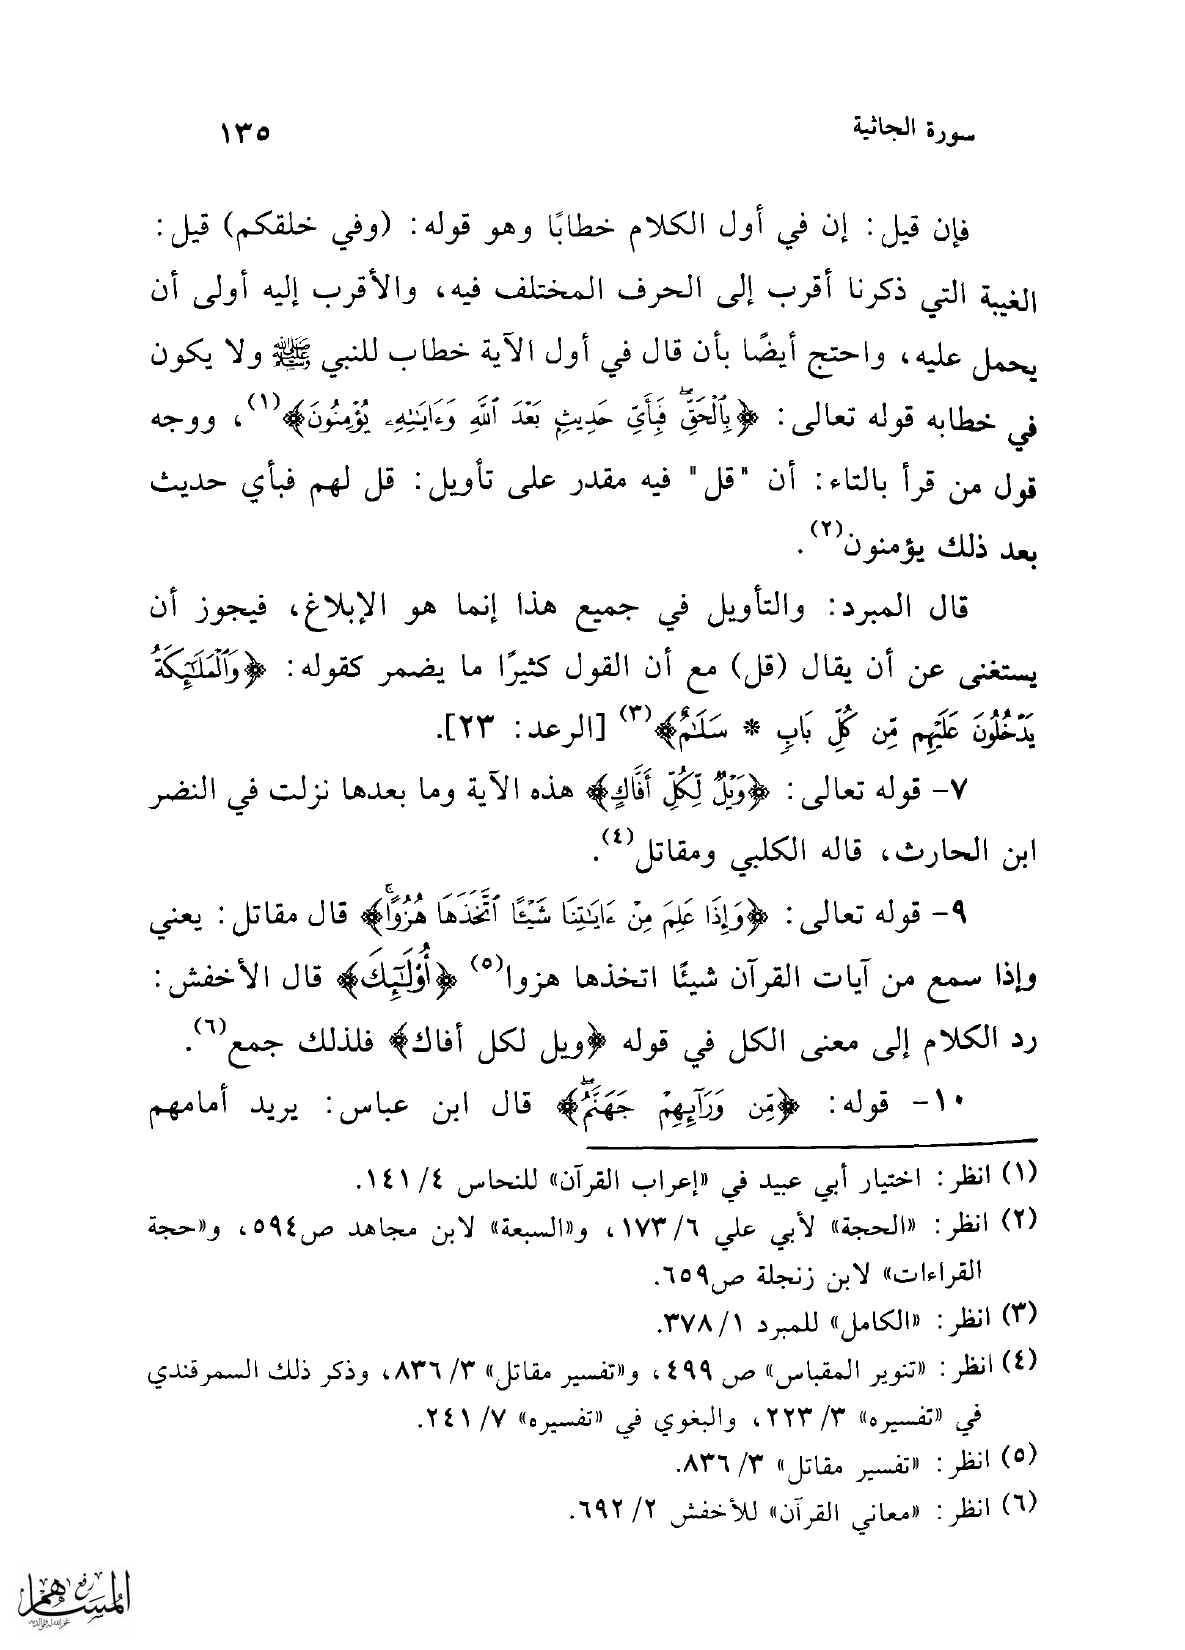 سورة الجاثية
١٣٥
فإن قيل: إن في أول الكلام خطابًا وهو قوله: (وفي خلقكم) قيل:
الغيبة التي ذكرنا أقرب إلى الحرف المختلف فيه، والأقرب إليه أولى أن
يحمل عليه، واحتج أيضًا بأن قال في أول الآية خطاب للنبي ﷺ ولا يكون
في خطابه قوله تعالى: ﴿بِٱلْحَقِّۖ فَبِأَيِّ حَدِيثٍۭ بَعْدَ ٱللَّهِ وَءَايَٰتِهِۦ يُؤْمِنُونَ﴾(١)، ووجه
قول من قرأ بالتاء: أن "قل" فيه مقدر على تأويل: قل لهم فبأي حديث
بعد ذلك يؤمنون(٢).
قال المبرد: والتأويل في جميع هذا إنما هو الإبلاغ، فيجوز أن
يستغنى عن أن يقال (قل) مع أن القول كثيرًا ما يضمر كقوله: ﴿وَٱلْمَلَٰٓئِكَةُ
يَدْخُلُونَ عَلَيْهِم مِّن كُلِّ بَابٍ * سَلَٰمٌ﴾(٣) [الرعد: ٢٣].
٧- قوله تعالى: ﴿وَيْلٌ لِّكُلِّ أَفَّاكٍ﴾ هذه الآية وما بعدها نزلت في النضر
ابن الحارث، قاله الكلبي ومقاتل(٤).
٩- قوله تعالى: ﴿وَإِذَا عَلِمَ مِنْ ءَايَٰتِنَا شَيْـًٔا ٱتَّخَذَهَا هُزُوًاۚ﴾ قال مقاتل: يعني
وإذا سمع من آيات القرآن شيئًا اتخذها هزوا(٥) ﴿أُوْلَٰٓئِكَ﴾ قال الأخفش:
رد الكلام إلى معنى الكل في قوله ﴿ويل لكل أفاك﴾ فلذلك جمع(٦).
١٠- قوله: ﴿مِّن وَرَآئِهِمْ جَهَنَّمُۖ﴾ قال ابن عباس: يريد أمامهم
(١) انظر: اختيار أبي عبيد في «إعراب القرآن» للنحاس ٤/ ١٤١.
(٢) انظر: «الحجة» لأبي علي ٦/ ١٧٣، و«السبعة» لابن مجاهد ص٥٩٤، و«حجة
القراءات» لابن زنجلة ص٦٥٩.
(٣) انظر: «الكامل» للمبرد ١/ ٣٧٨.
(٤) انظر: «تنوير المقباس» ص ٤٩٩، و«تفسير مقاتل» ٣/ ٨٣٦، وذكر ذلك السمرقندي
في «تفسيره» ٣/ ٢٢٣، والبغوي في «تفسيره» ٧/ ٢٤١.
(٥) انظر: «تفسير مقاتل» ٣/ ٨٣٦.
(٦) انظر: «معاني القرآن» للأخفش ٢/ ٦٩٢.